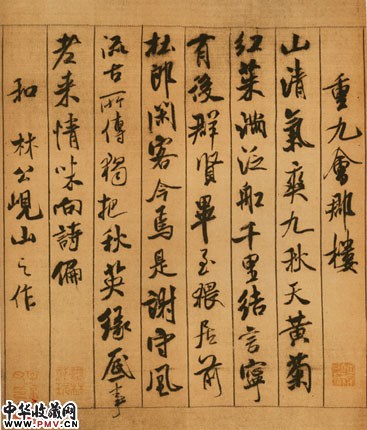 重九會郡樓
山清氣爽九秋天黃菊
紅茱滿泛船千里結言寧
有後群賢畢至猥居前
杜郎閑客今焉是謝守風
流古所傳獨把秋英緣底事
老來情味向詩偏
和林公峴山之作
中华收藏网
WWW.PMV.CN